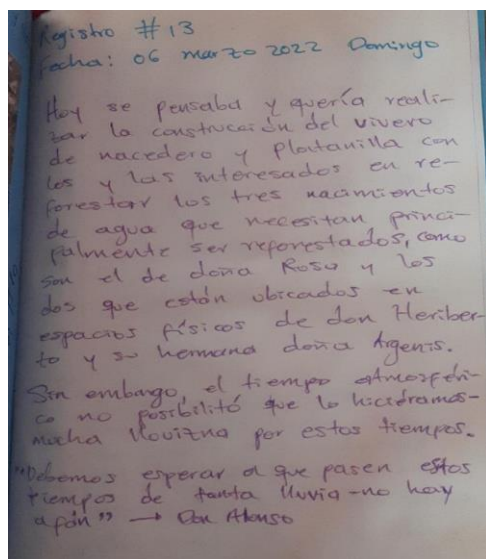 Registro #13
Fecha: 06 marzo 2022 Domingo
Hoy se pensaba y quería reali-
zar la construcción del vivero
de nacedero y platanilla con
los y las interesados en re-
forestar los tres nacimientos
de agua que necesitan princi-
palmente ser reforestados, como
son el de doña Rosa y los
dos que están ubicados en
espacios físicos de don Heriber-
to y su hermana doña Argenis.
Sin embargo, el tiempo atmosféri-
co no posibilitó que lo hiciéramos-
mucha llovizna por estos tiempos.
"Debemos esperar a que pasen estos
tiempos de tanta lluvia-no hay
afán" → Don Alonso